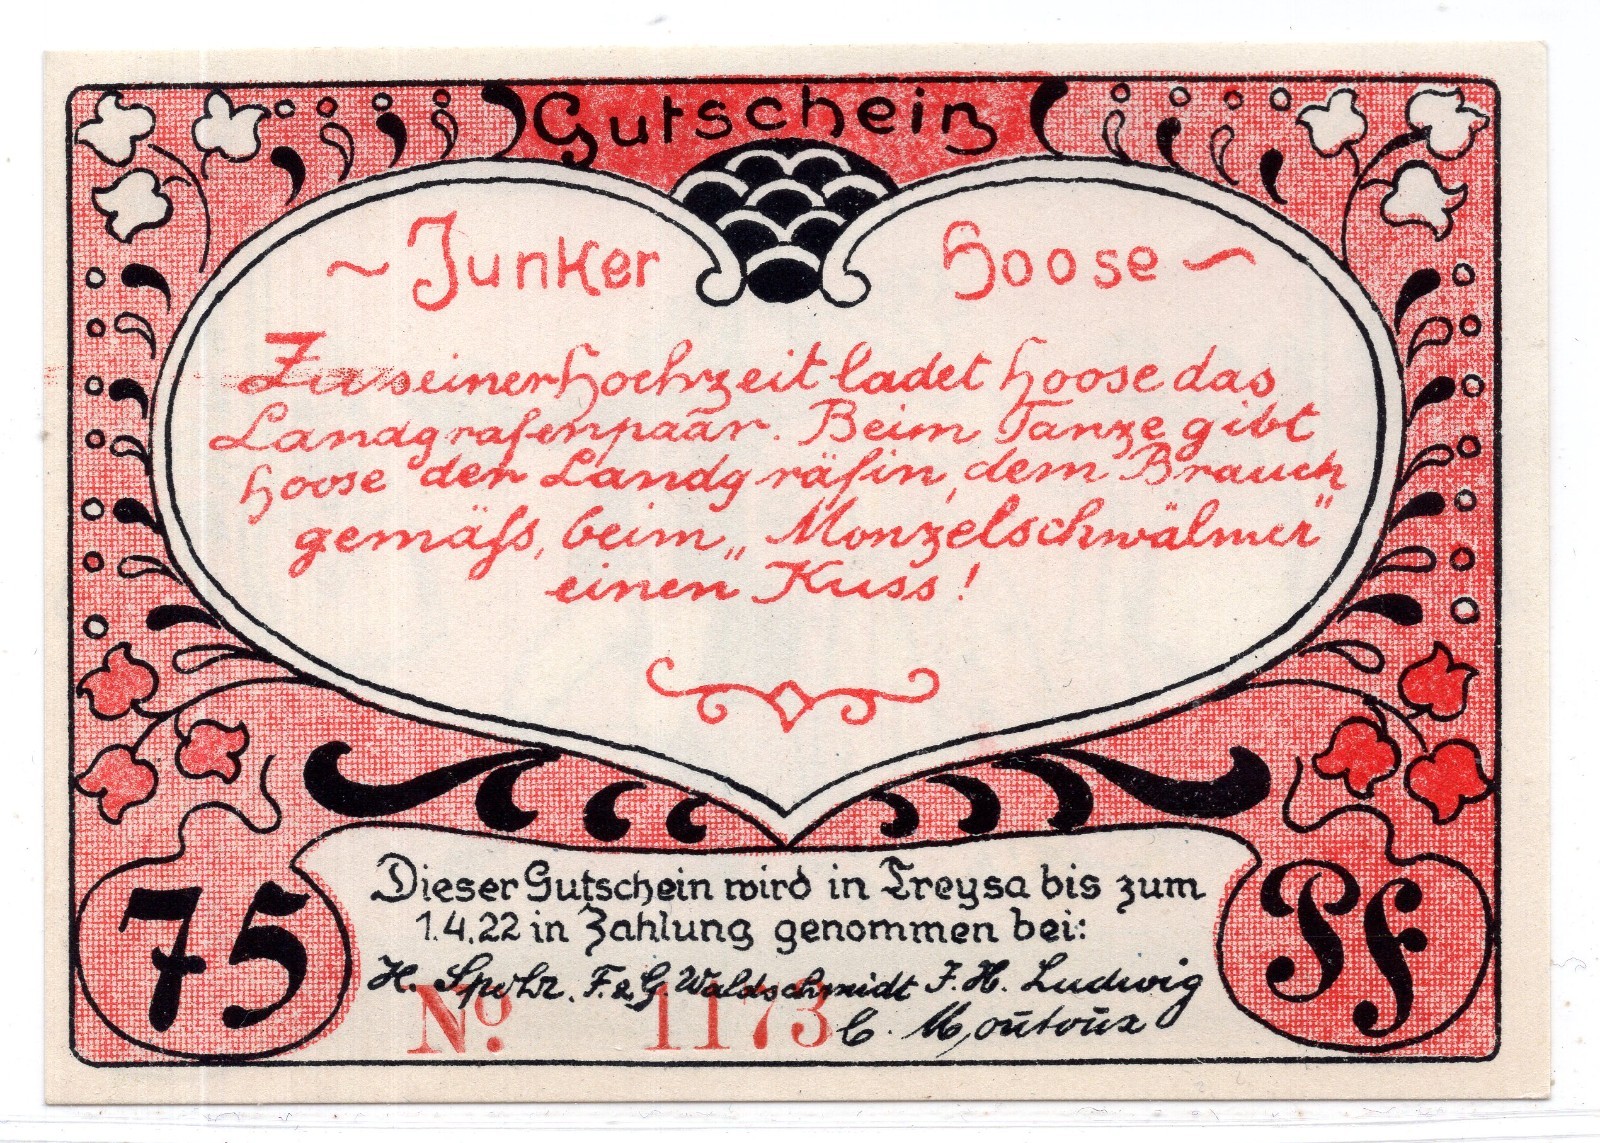 Gutschein
~ Junker Hoose ~
Zu seiner Hochzeit ladet Hoose das
Landgrafenpaar. Beim Tanze gibt
Hoose der Landgräfin, dem Brauch
gemäß, beim „Monzelschwälmer"
einen Kuss!
Dieser Gutschein wird in Treysa bis zum
1.4.22 in Zahlung genommen bei:
H. Spohr. F. & G. Waldschmidt J. H. Ludwig
C. Moutoux
No. 1173
75
Pf